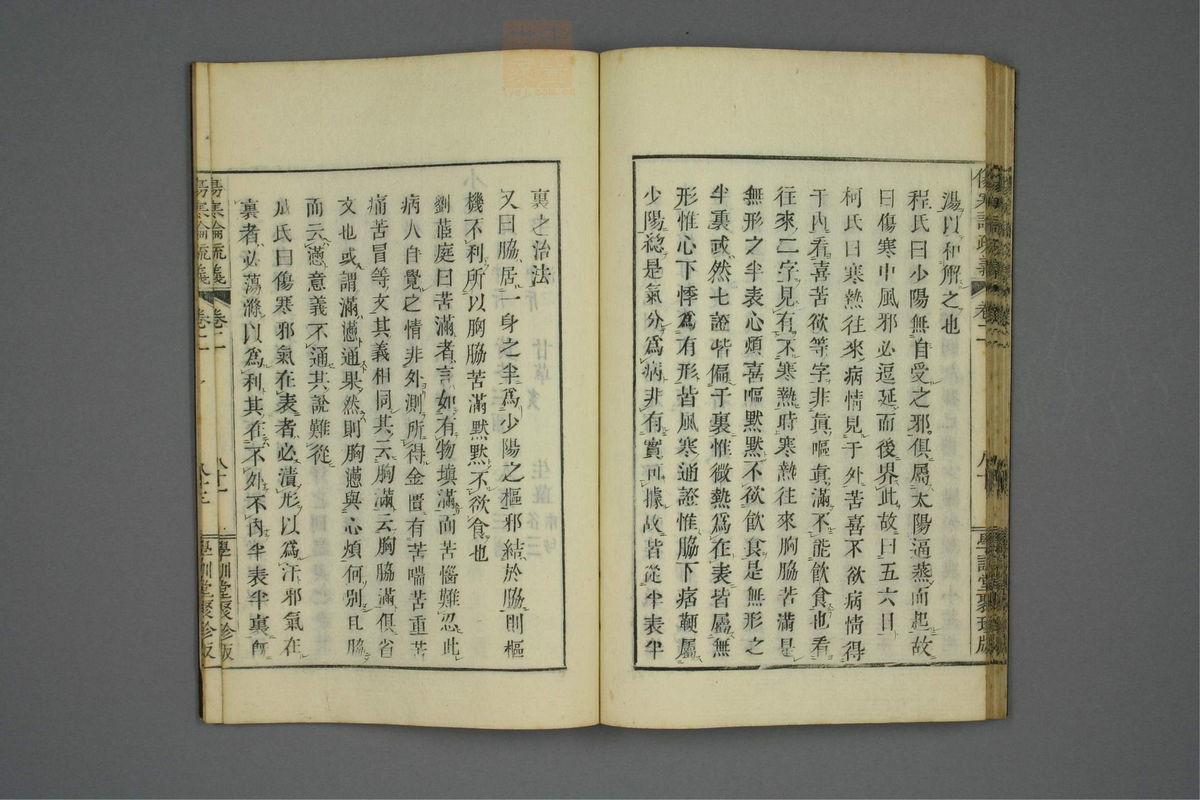 湯以和解之也
程氏曰少陽無自受之邪俱屬太陽逼蒸而起故
曰傷寒中風邪必逗延而後界此故曰五六日
柯氏曰寒熱往來病情見于外苦喜不欲病情得
于內看喜苦欲等字非眞嘔眞滿不能飮食也看
往來二字見有不寒熱時寒熱往來胸脇苦滿是
無形之半表心煩喜嘔默默不欲飮食是無形之
半裏或然七證皆偏于裏惟微熱爲在表皆屬無
形惟心下悸爲有形皆風寒通證惟脇下痞鞕屬
少陽總是氣分爲病非有實可據故皆從半表半
裏之治法
又曰脇居一身之半爲少陽之樞邪結於脇則樞
機不利所以胸脇苦滿默默不欲食也
劉茝庭曰苦滿者言如有物塡滿而苦惱難忍此
病人自覺之情非外測所得金匱有苦喘苦重苦
痛苦冒等文其義相同其云胸滿云胸脇滿俱省
文也或謂滿懣通果然則胸懣與心煩何別且脇
而云懣意義不通其說難從
成氏曰傷寒邪氣在表者必漬形以爲汗邪氣在
裏者必蕩滌以爲利其在不外不內半表半裏旣
傷寒論疏義
卷二
八十三
學訓堂聚珍版